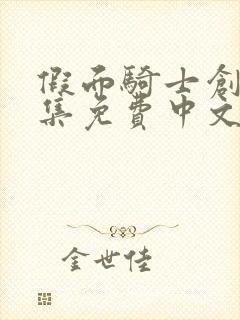 假面騎士創
集免費中文
金世佳